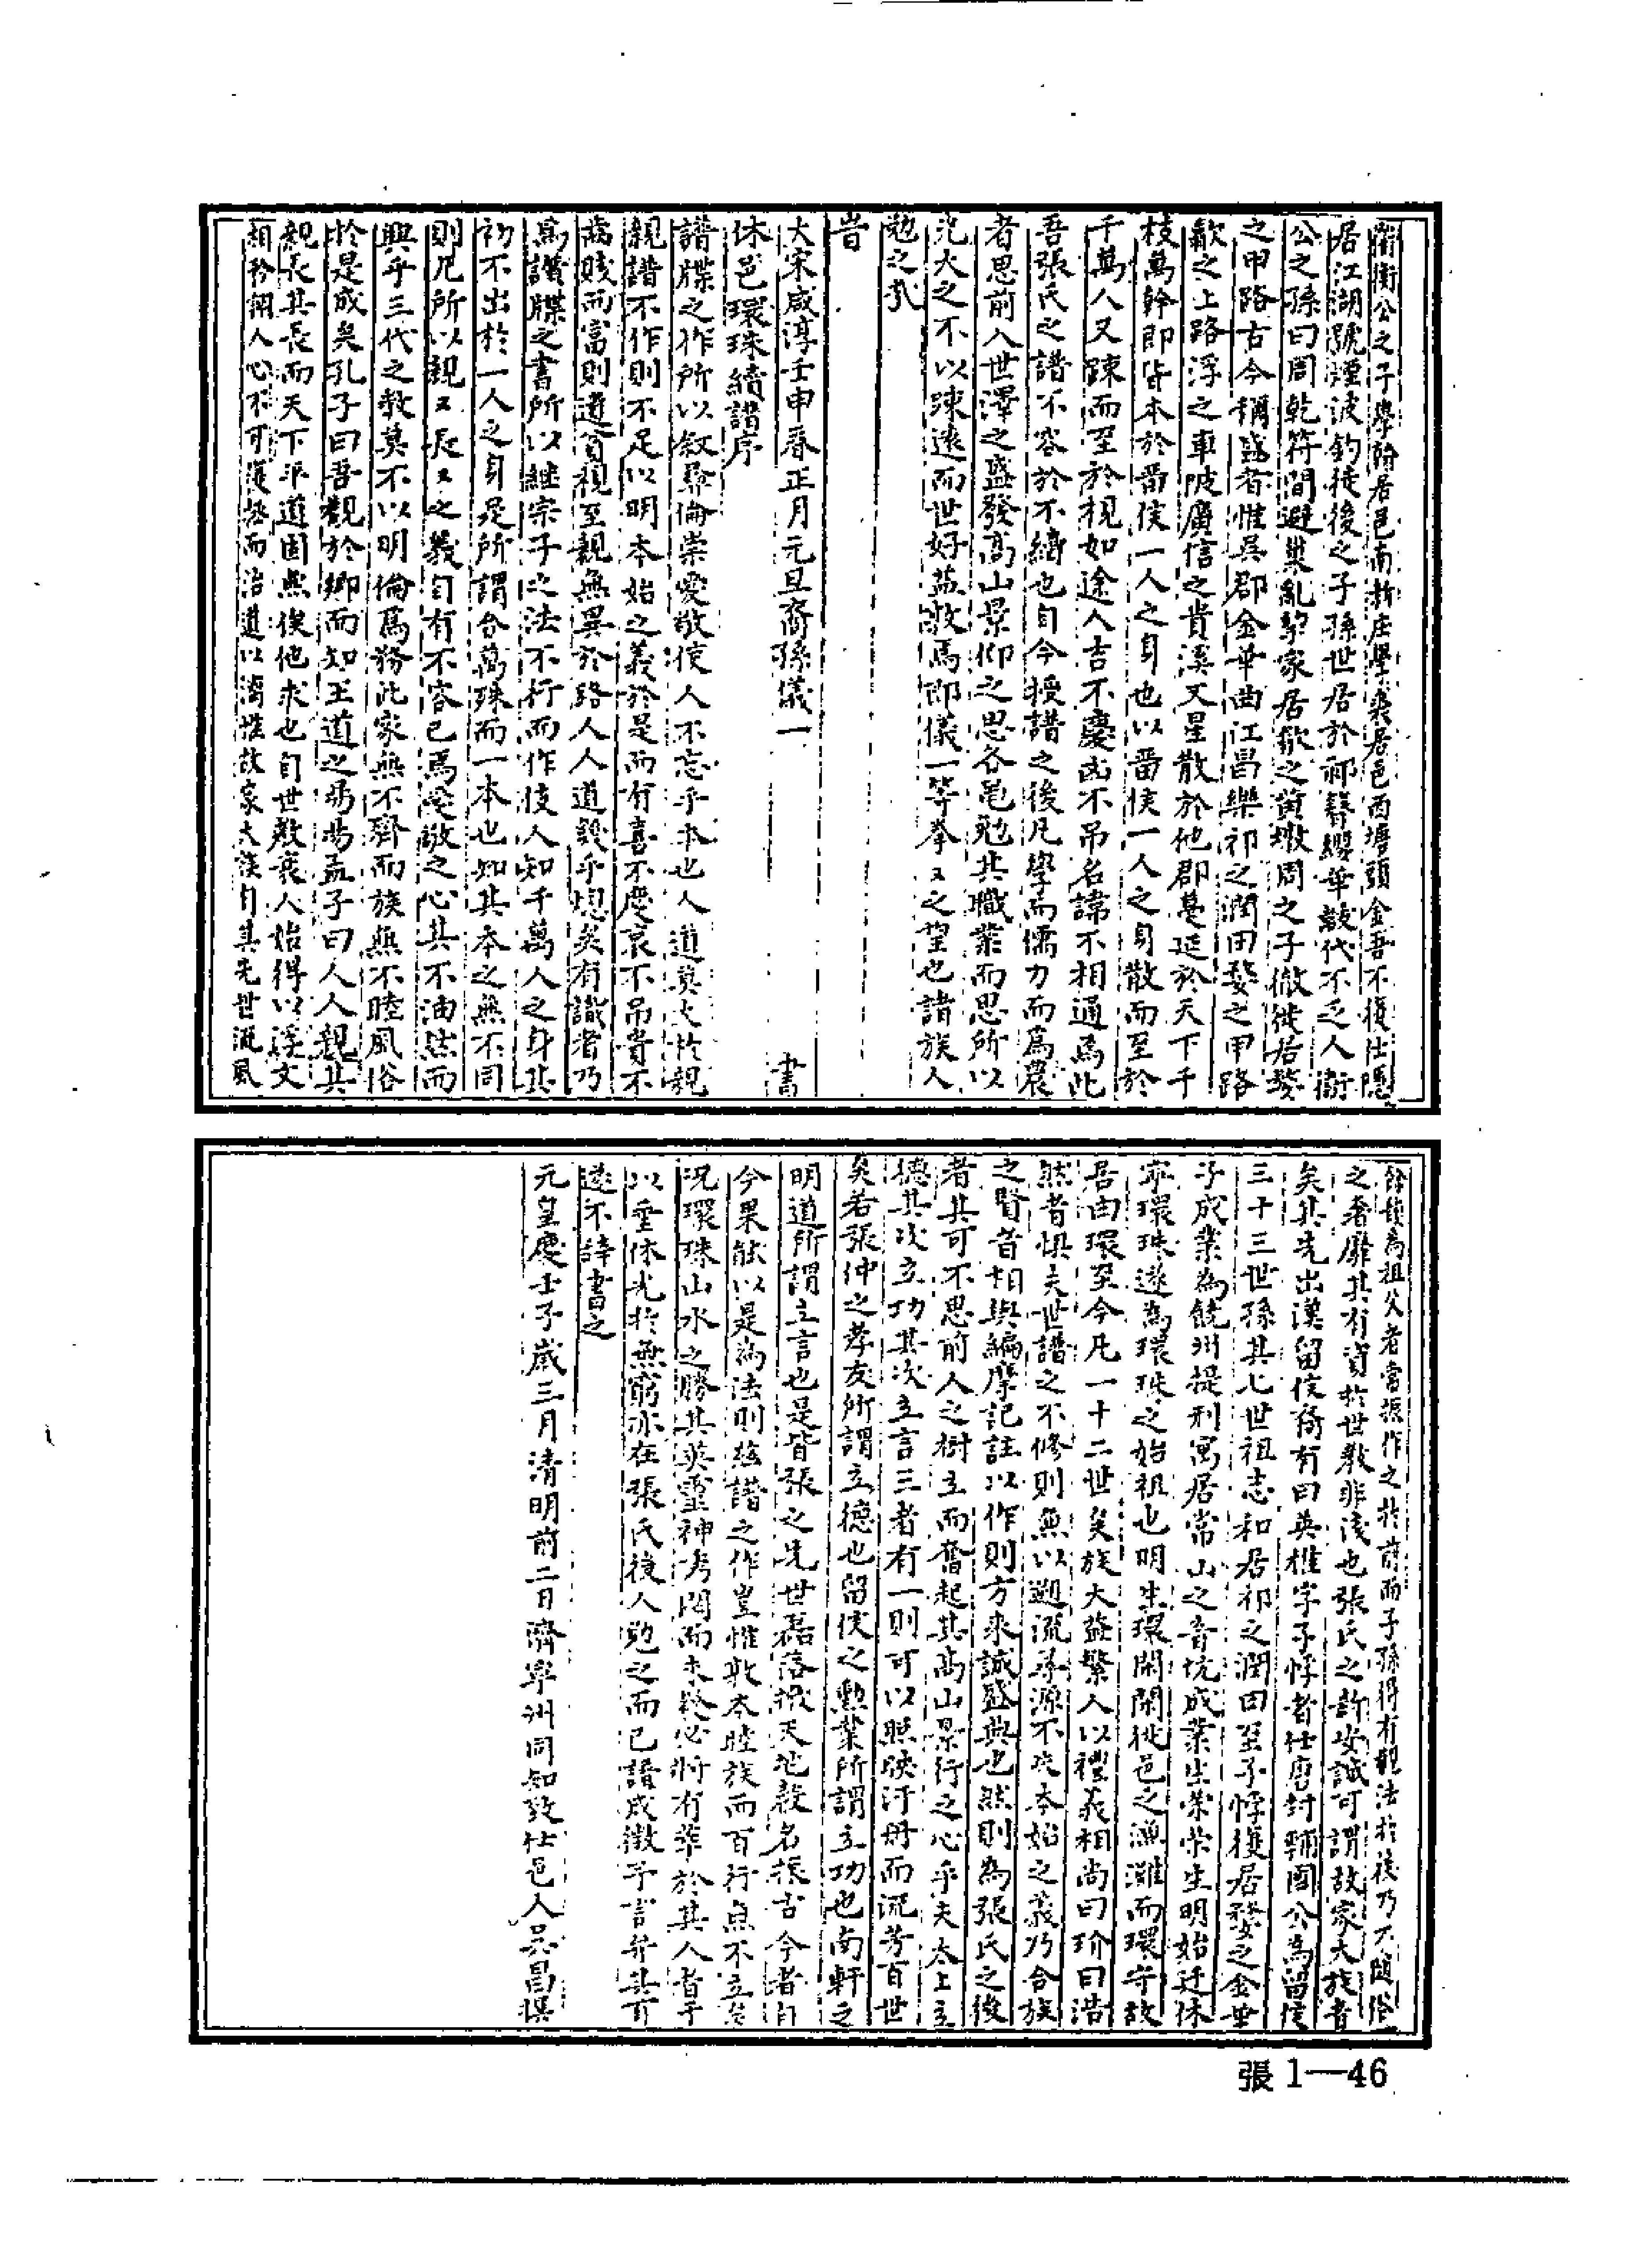 衞衡公之子學翰居邑南折庄學裘居邑西塘頭金吾不復仕隱
居江湖號煙波釣徒後之子孫世居於祁簪纓華皷代不乏人衞
公之孫曰周乾符間避巢亂挈家居歙之黃墩周之子徹徙居婺
之甲路古今稱盛者惟吳郡金華曲江昌樂祁之潤田婺之甲路
歙之上路浮之車陂廣信之貴溪又星散於他郡蔓延於天下千
枝萬幹即皆本於畱侯一人之身也以畱侯一人之身散而至於
千萬人又踈而至於視如途人吉不慶凶不吊名諱不相通焉此
吾張氏之譜不容於不續也自今授譜之後凡學而儒力而爲農
者思前人世澤之盛發高山景仰之思各黽勉其職業而思所以
光大之不以踈遠而世好益敦焉即儀一等拳〻之望也諸族人
勉之㢤
旹
大宋咸淳壬申春正月元旦裔孫儀一　書
休邑環珠續譜序
譜牒之作所以敘彛倫崇愛敬使人不忘乎本也人道莫大於親
親譜不作則不足以明本始之義於是而有喜不慶哀不吊貴不
葴賤而富則遺貧視至親無異於路人人道毀乎熄矣有識者乃
爲譜牒之書所以継宗子之法不行而作使人知千萬人之身其
初不出於一人之身是所謂合萬殊而一本也知其本之無不同
則凡所以親〻長〻之義自有不容已焉愛敬之心其不油然而
興乎三代之教莫不以明倫爲務此家無不齊而族無不睦風俗
於是成矣孔子曰吾觀於鄉而知王道之易易孟子曰人人親其
親長其長而天下平道固無俟他求也自世教衰人始得以浮文
相矜詡人心不可護拯而治道以漓惟故家大族自其先世流風
餘韻爲祖父者當振作之於前而子孫得有觀法於後乃不隨俗
之奢靡其有資於世教非淺也張氏之許安誠可謂故家大族者
矣其先出漢留侯裔有曰英椎字子惇者仕唐封輔國公為留侯
三十三世孫其七世祖志和居祁之潤田至子惇復居婺之金華
子成業為饒州提刑寓居常山之音坑成業生荣荣生明始迁休
寧環珠遂為環珠之始祖也明生環閑閑徙邑之漁灘而環守故
居由環至今凡一十二世矣族大益繁人以禮義相尚曰玠曰浩
然者惧夫世譜之不修則無以遡流尋源不失本始之義乃合族
之賢者相與編摩記註以作則方來誠盛典也然則為張氏之後
者其可不思前人之樹立而奮起其高山景行之心乎夫太上立
德其次立功其次立言三者有一則可以照映汗册而流芳百世
矣若張仲之孝友所謂立德也留侯之勲業所謂立功也南軒之
明道所謂立言也是皆張之先世磊落掀天地穀名振古今者自
今果能以是為法則茲譜之作豈惟敦本睦族而百行無不立矣
況環珠山水之勝其英靈神秀閟而未發必將有萃於其人者乎
以垂休光於無窮亦在張氏後人勉之而已譜成徵予言弁其首
遂不辞書之
元皇慶壬子歲三月清明前二日濟寧州同知致仕邑人吳昌撰
張1—46